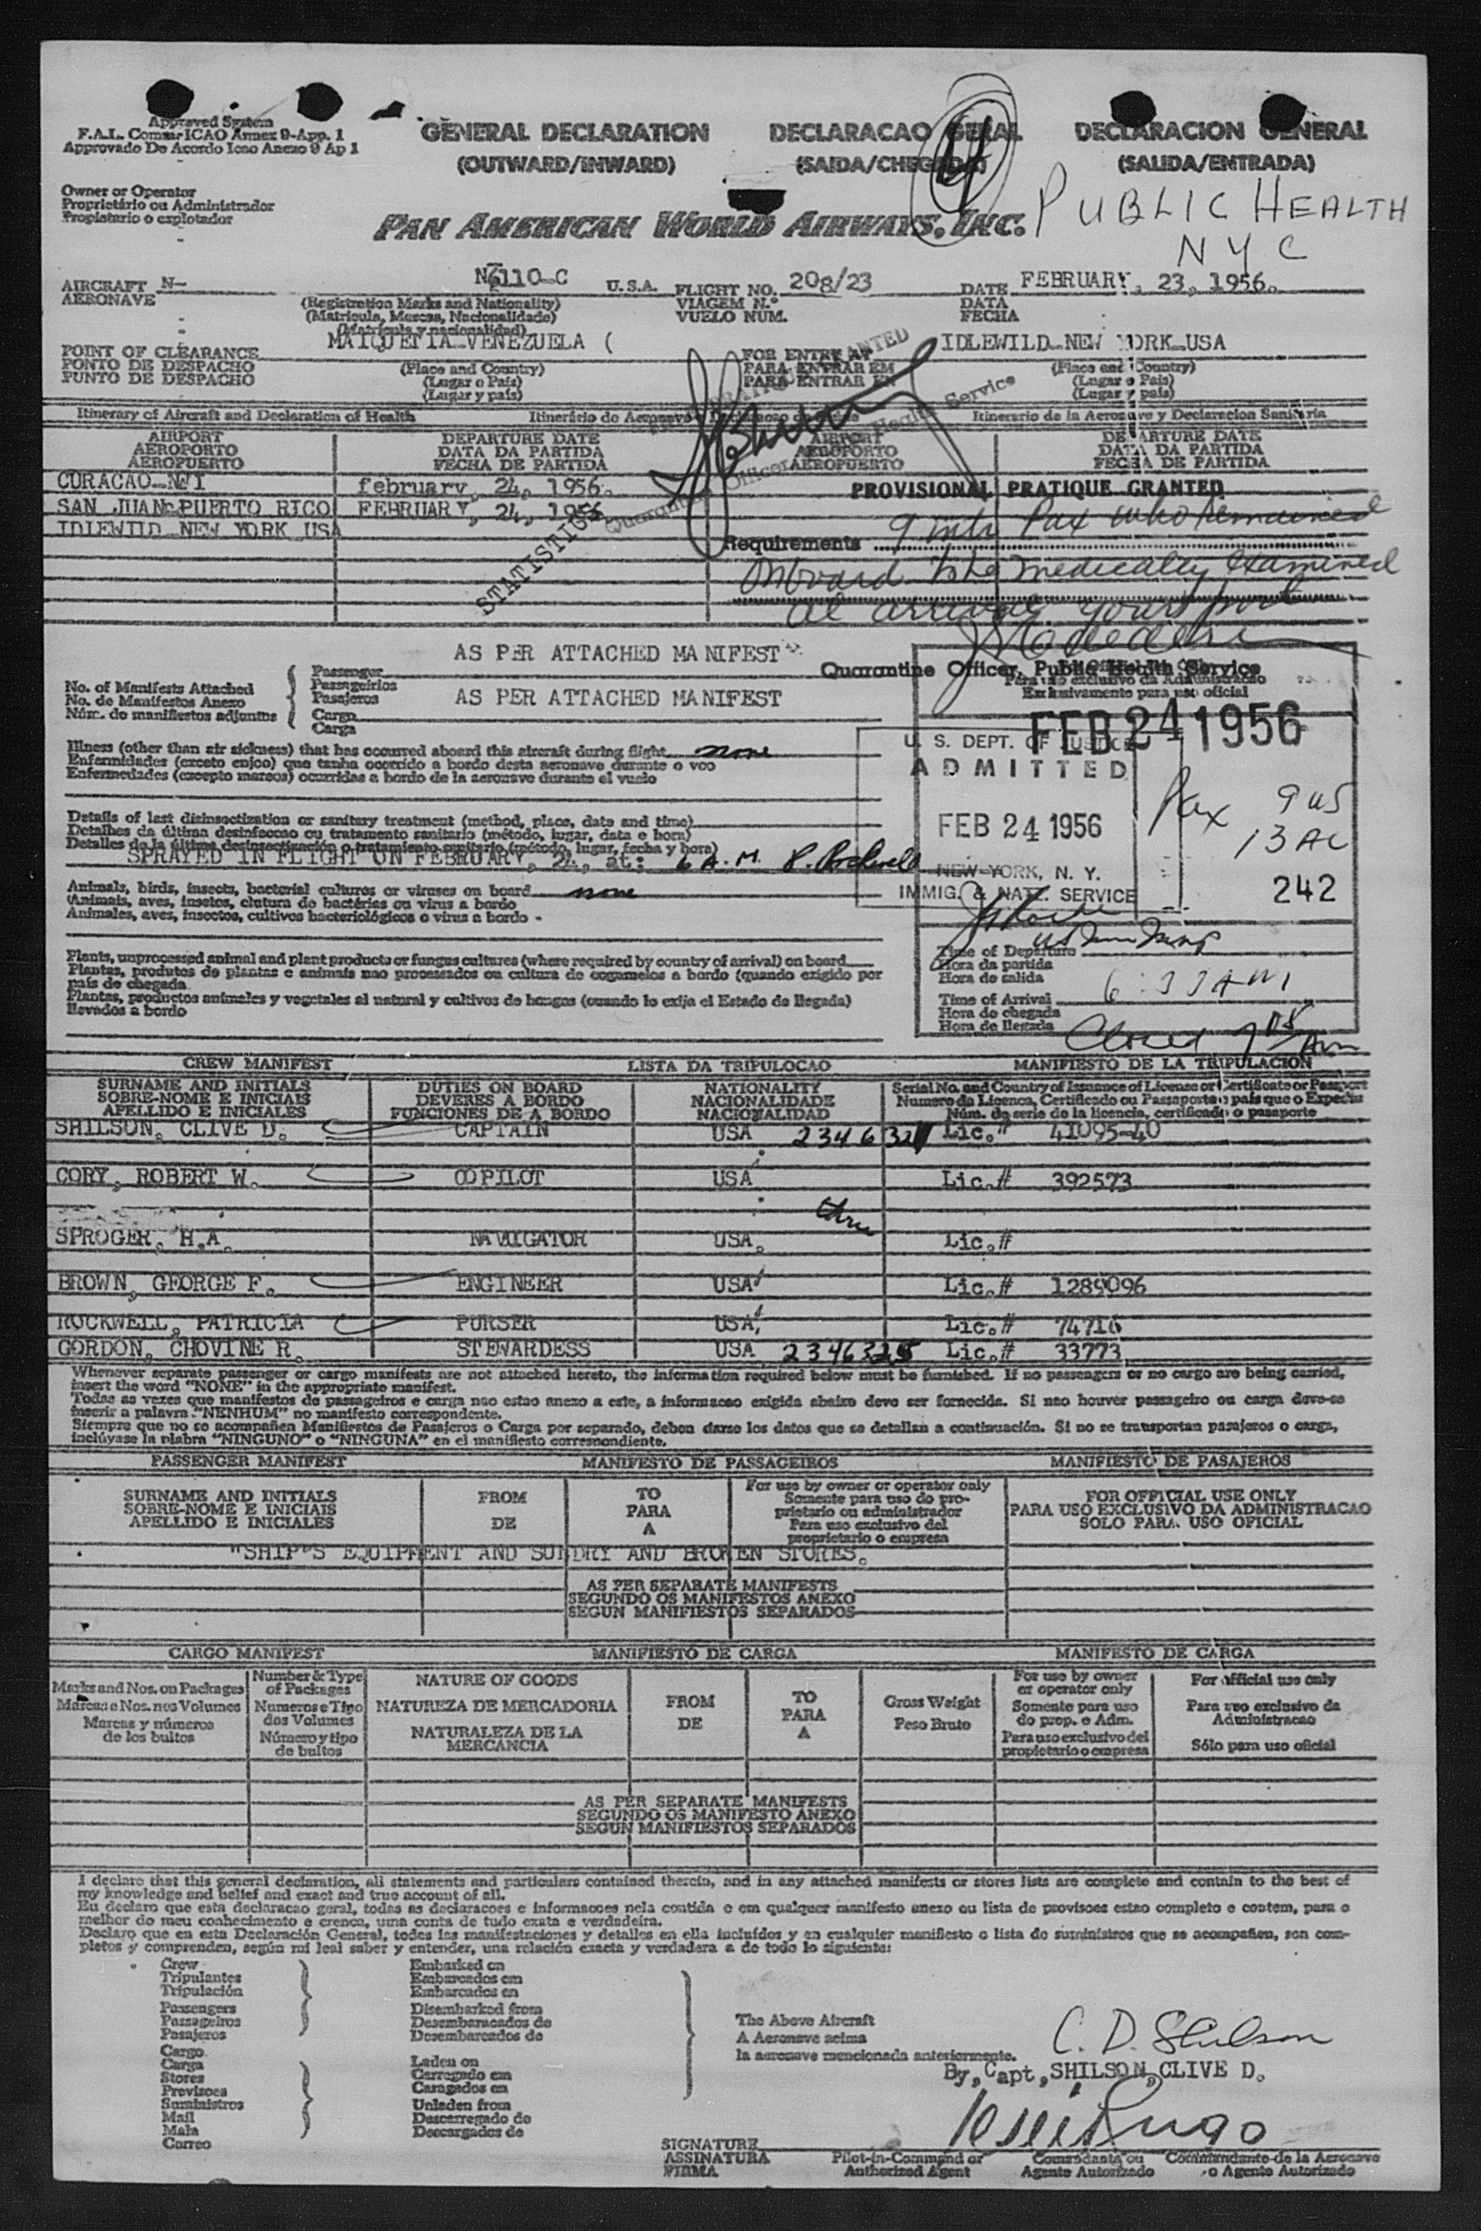 Approved System
F.A.L. Comm-ICAO Annex 9-App. 1
Approvado De Acordo Icao Anexo 9 Ap 1
GENERAL DECLARATION
(OUTWARD/INWARD)
DECLARACAO GERAL
(SAIDA/CHEGADA)
DECLARACION GENERAL
(SALIDA/ENTRADA)
4
PUBLIC HEALTH
NYC
Owner or Operator
Proprietário ou Administrador
Propietario o explotador
PAN AMERICAN WORLD AIRWAYS, INC.
AIRCRAFT N- N6110-C U.S.A. FLIGHT NO. 208/23 DATE FEBRUARY, 23, 1956.
AERONAVE (Registration Marks and Nationality) VIAGEM N.º DATA
(Matricula, Marcas, Nacionalidade) VUELO NUM. FECHA
(Matrícula y nacionalidad)
POINT OF CLEARANCE MAIQUETIA-VENEZUELA ( FOR ENTRY AT IDLEWILD-NEW YORK-USA
PONTO DE DESPACHO (Place and Country) PARA ENTRAR EM (Place and Country)
PUNTO DE DESPACHO (Lugar o País) PARA ENTRAR EN (Lugar o País)
(Lugar y país) (Lugar y país)
Itinerary of Aircraft and Declaration of Health Itinerário do Aeronave Declaracao de Itinerario de la Aeronave y Declaracion Sanitaria
AIRPORT DEPARTURE DATE AIRPORT DEPARTURE DATE
AEROPORTO DATA DA PARTIDA AEROPORTO DATA DA PARTIDA
AEROPUERTO FECHA DE PARTIDA AEROPUERTO FECHA DE PARTIDA
CURACAO-NWI february, 24, 1956.
SAN JUAN-PUERTO RICO FEBRUARY, 24, 1956
IDLEWILD-NEW YORK USA
STATISTICS
Quarantine Officer Health Service
PROVISIONAL PRATIQUE GRANTED
Requirements 9 intr Pax who remained
onboard to be medically examined
at arrival your port
Quarantine Officer, Public Health Service
No. of Manifests Attached
No. de Manifestos Anexo
Núm. de manifiestos adjuntos
Passenger AS PER ATTACHED MANIFEST
Passageirios
Pasajeros AS PER ATTACHED MANIFEST
Cargo
Carga
Para uso exclusivo da Administracao
Exclusivamente para uso oficial
FEB 24 1956
Illness (other than air sickness) that has occurred aboard this aircraft during flight none
Enfermidades (exceto enjoo) que tenha ocorrido a bordo desta aeronave durante o voo
Enfermedades (excepto mareos) ocurridas a bordo de la aeronave durante el vuelo
U. S. DEPT. OF JUSTICE
ADMITTED
FEB 24 1956
NEW YORK, N. Y.
IMMIG. & NATZ. SERVICE
Pax 9 US
13 AL
242
Details of last disinsectization or sanitary treatment (method, place, date and time)
Detalhes da última desinfeccao ou tratamento sanitario (método, lugar, data e hora)
Detalles de la última desinsectización o tratamiento sanitario (método, lugar, fecha y hora)
SPRAYED IN FLIGHT ON FEBRUARY, 24, at: 6 A.M. P. Rockwell
Animals, birds, insects, bacterial cultures or viruses on board none
Animais, aves, insetos, clutura de bactérias ou virus a bordo
Animales, aves, insectos, cultivos bacteriológicos o virus a bordo -
Plants, unprocessed animal and plant products or fungus cultures (where required by country of arrival) on board
Plantas, produtos de plantas e animais nao processados ou cultura de cogumelos a bordo (quando exigido por
país de chegada
Plantas, productos animales y vegetales al natural y cultivos de hongos (cuando lo exija el Estado de llegada)
llevados a bordo
Time of Departure
Hora da partida
Hora de salida
Time of Arrival 6:33 AM
Hora de chegada
Hora de llegada
Closed 7 05 AM
CREW MANIFEST LISTA DA TRIPULOCAO MANIFIESTO DE LA TRIPULACION
SURNAME AND INITIALS DUTIES ON BOARD NATIONALITY Serial No. and Country of Issuance of License or Certificate or Passport
SOBRE-NOME E INICIAIS DEVERES A BORDO NACIONALIDADE Numero da Licenca, Certificado ou Passaporte e país que o Expediu
APELLIDO E INICIALES FUNCIONES DE A BORDO NACIONALIDAD Núm. de serie de la licencia, certificado o pasaporte
SHILSON, CLIVE D. CAPTAIN USA 2346321 Lic.# 41095-40
CORY, ROBERT W. COPILOT USA Lic.# 392573
thru
SPROGER, H.A. NAVIGATOR USA. Lic.#
BROWN, GEORGE F. ENGINEER USA Lic.# 1289096
ROCKWELL, PATRICIA PURSER USA. Lic.# 74716
GORDON, CHOVINE R. STEWARDESS USA 2346325 Lic.# 33773
Whenever separate passenger or cargo manifests are not attached hereto, the information required below must be furnished. If no passengers or no cargo are being carried,
insert the word "NONE" in the appropriate manifest.
Todas as vezes que manifestos de passageiros e carga nao estao anexo a este, a informacao exigida abaixo deve ser fornecida. Si nao houver passageiro ou carga deve-se
inserir a palavra "NENHUM" no manifesto correspondente.
Siempre que no se acompañen Manifiestos de Pasajeros o Carga por separado, deben darse los datos que se detallan a continuación. Si no se transportan pasajeros o carga,
inclúyase la plabra "NINGUNO" o "NINGUNA" en el manifiesto correspondiente.
PASSENGER MANIFEST MANIFESTO DE PASSAGEIROS MANIFIESTO DE PASAJEROS
SURNAME AND INITIALS
SOBRE-NOME E INICIAIS
APELLIDO E INICIALES
FROM
DE
TO
PARA
A
For use by owner or operator only
Somente para uso do pro-
prietario ou administrador
Para uso exclusivo del
proprietario o empresa
FOR OFFICIAL USE ONLY
PARA USO EXCLUSIVO DA ADMINISTRACAO
SOLO PARA USO OFICIAL
"SHIP"S EQUIPMENT AND SUNDRY AND BROKEN STORES.
AS PER SEPARATE MANIFESTS
SEGUNDO OS MANIFESTOS ANEXO
SEGUN MANIFIESTOS SEPARADOS
CARGO MANIFEST MANIFIESTO DE CARGA MANIFESTO DE CARGA
Marks and Nos. on Packages
Marcas e Nos. nos Volumes
Marcas y números
de los bultos
Number & Type
of Packages
Numeros e Tipo
dos Volumes
Número y tipo
de bultos
NATURE OF GOODS
NATUREZA DE MERCADORIA
NATURALEZA DE LA
MERCANCIA
FROM
DE
TO
PARA
A
Gross Weight
Peso Bruto
For use by owner
or operator only
Somente para uso
do prop. o Adm.
Para uso exclusivo del
propietario o empresa
For official use only
Para uso exclusivo da
Administracao
Sólo para uso oficial
AS PER SEPARATE MANIFESTS
SEGUNDO OS MANIFESTO ANEXO
SEGUN MANIFIESTOS SEPARADOS
I declare that this general declaration, all statements and particulars contained therein, and in any attached manifests or stores lists are complete and contain to the best of
my knowledge and belief and exact and true account of all.
Eu declaro que esta declaracao geral, todas as declaracoes e informacoes nela contida e em qualquer manifesto anexo ou lista de provisoes estao completo e contem, para o
melhor do meu conhecimento e crenca, uma conta de tudo exata e verdadeira.
Declaro que en esta Declaración General, todos las manifestaciones y detalles en ella incluídos y en cualquier manifiesto o lista de suministros que se acompañen, son com-
pletos y comprenden, según mi leal saber y entender, una relación exacta y verdadera a de todo lo siguiente:
Crew
Tripulantes
Tripulación
Passengers
Passageiros
Pasajeros
Cargo
Carga
Stores
Provisoes
Suministros
Mail
Mala
Correo
Embarked on
Embarcados em
Embarcados en
Disembarked from
Desembarcados de
Desembarcados de
Laden on
Carregado em
Cargados en
Unladen from
Descarregado de
Descargados de
The Above Aircraft
A Aeronave acima
la aeronave mencionada anteriormente.
C. D. Shilson
By, Capt, SHILSON, CLIVE D.
SIGNATURE
ASSINATURA
FIRMA
Pilot-in-Command or
Authorized Agent
Comandante ou
Agente Autorizado
Commandante de la Aeronave
o Agente Autorizado